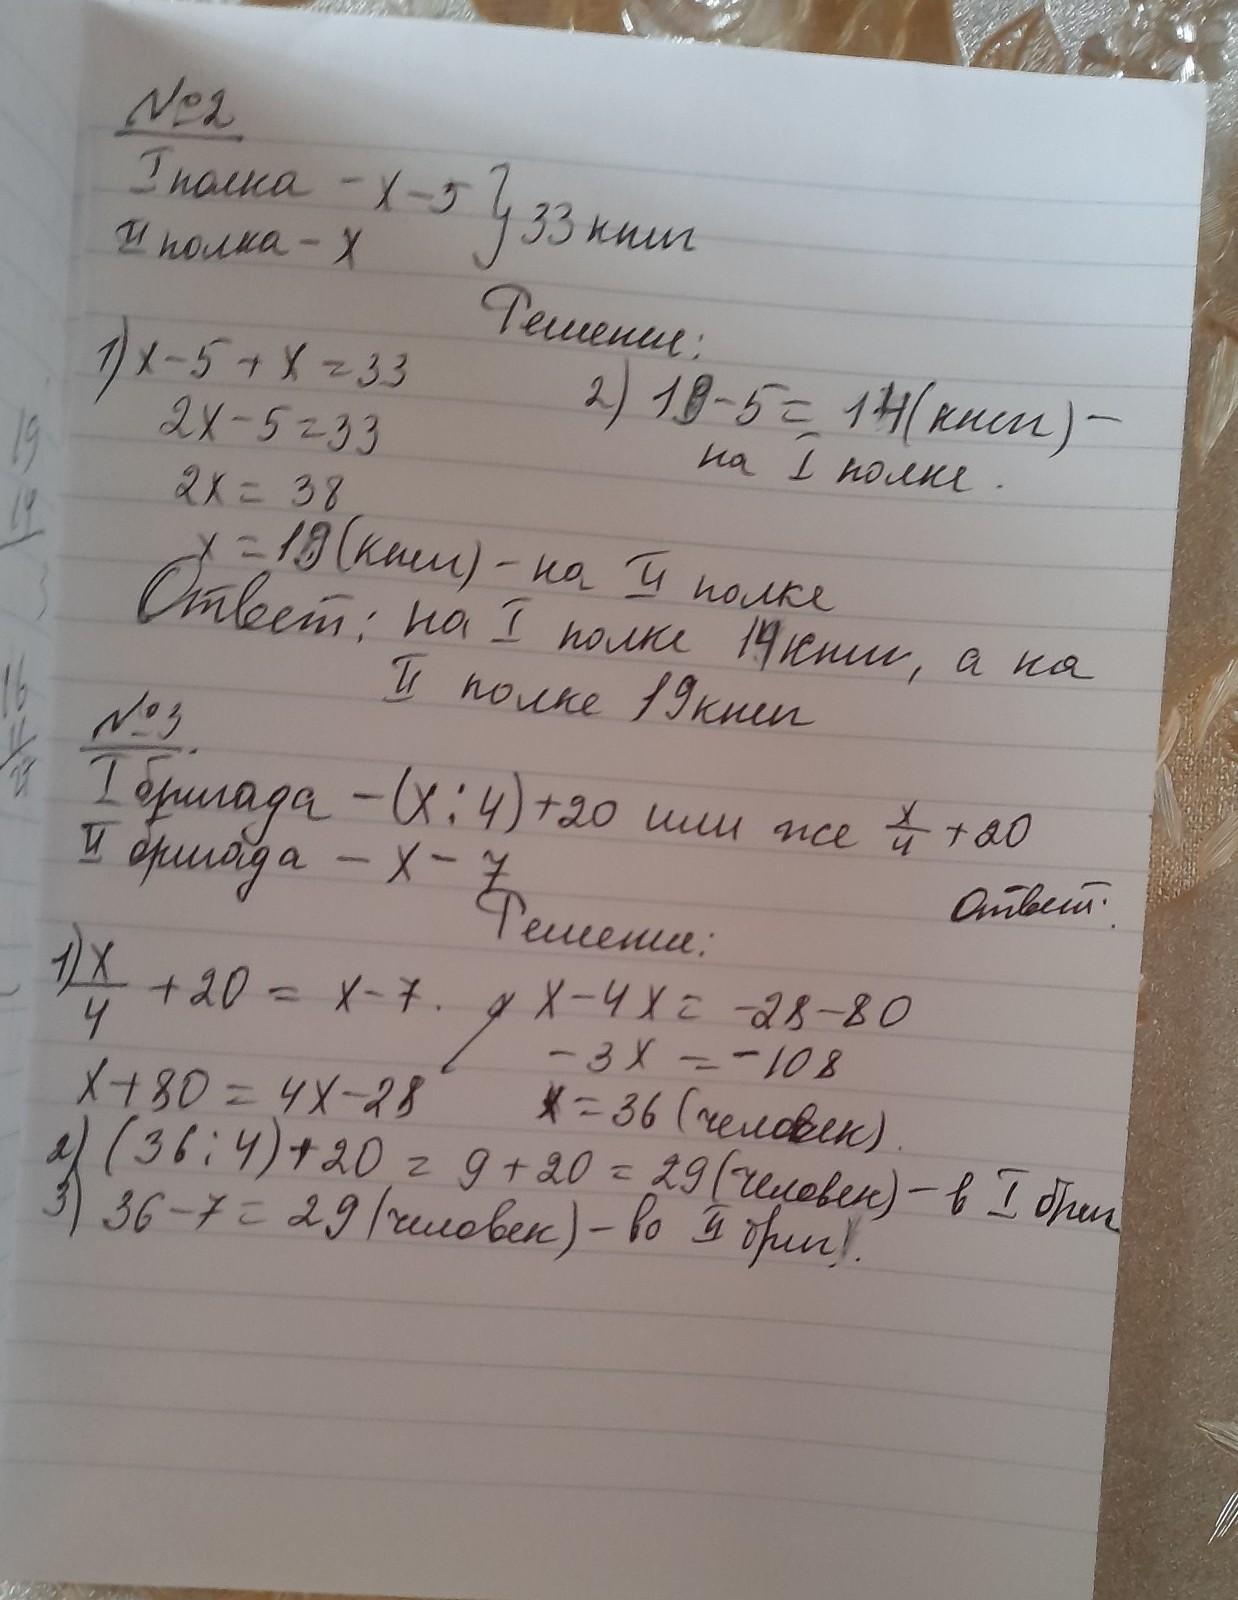 №2
I полка - х-5 } 33 книг
II полка - х
Решение:
1) х-5+х=33
2х-5=33
2х=38
х=19(книг)-на II полке
2) 19-5=14(книг)-
на I полке.
Ответ: на I полке 14книг, а на
II полке 19книг
№3.
I бригада -(х:4)+20 или же х/4+20
II бригада - х-7
Ответ:
Решение:
1) х/4+20=х-7.
х+80=4х-28
х-4х=-28-80
-3х=-108
х=36(человек).
2) (36:4)+20=9+20=29(человек)-в I бриг
3) 36-7=29(человек)-во II бриг.
19
16